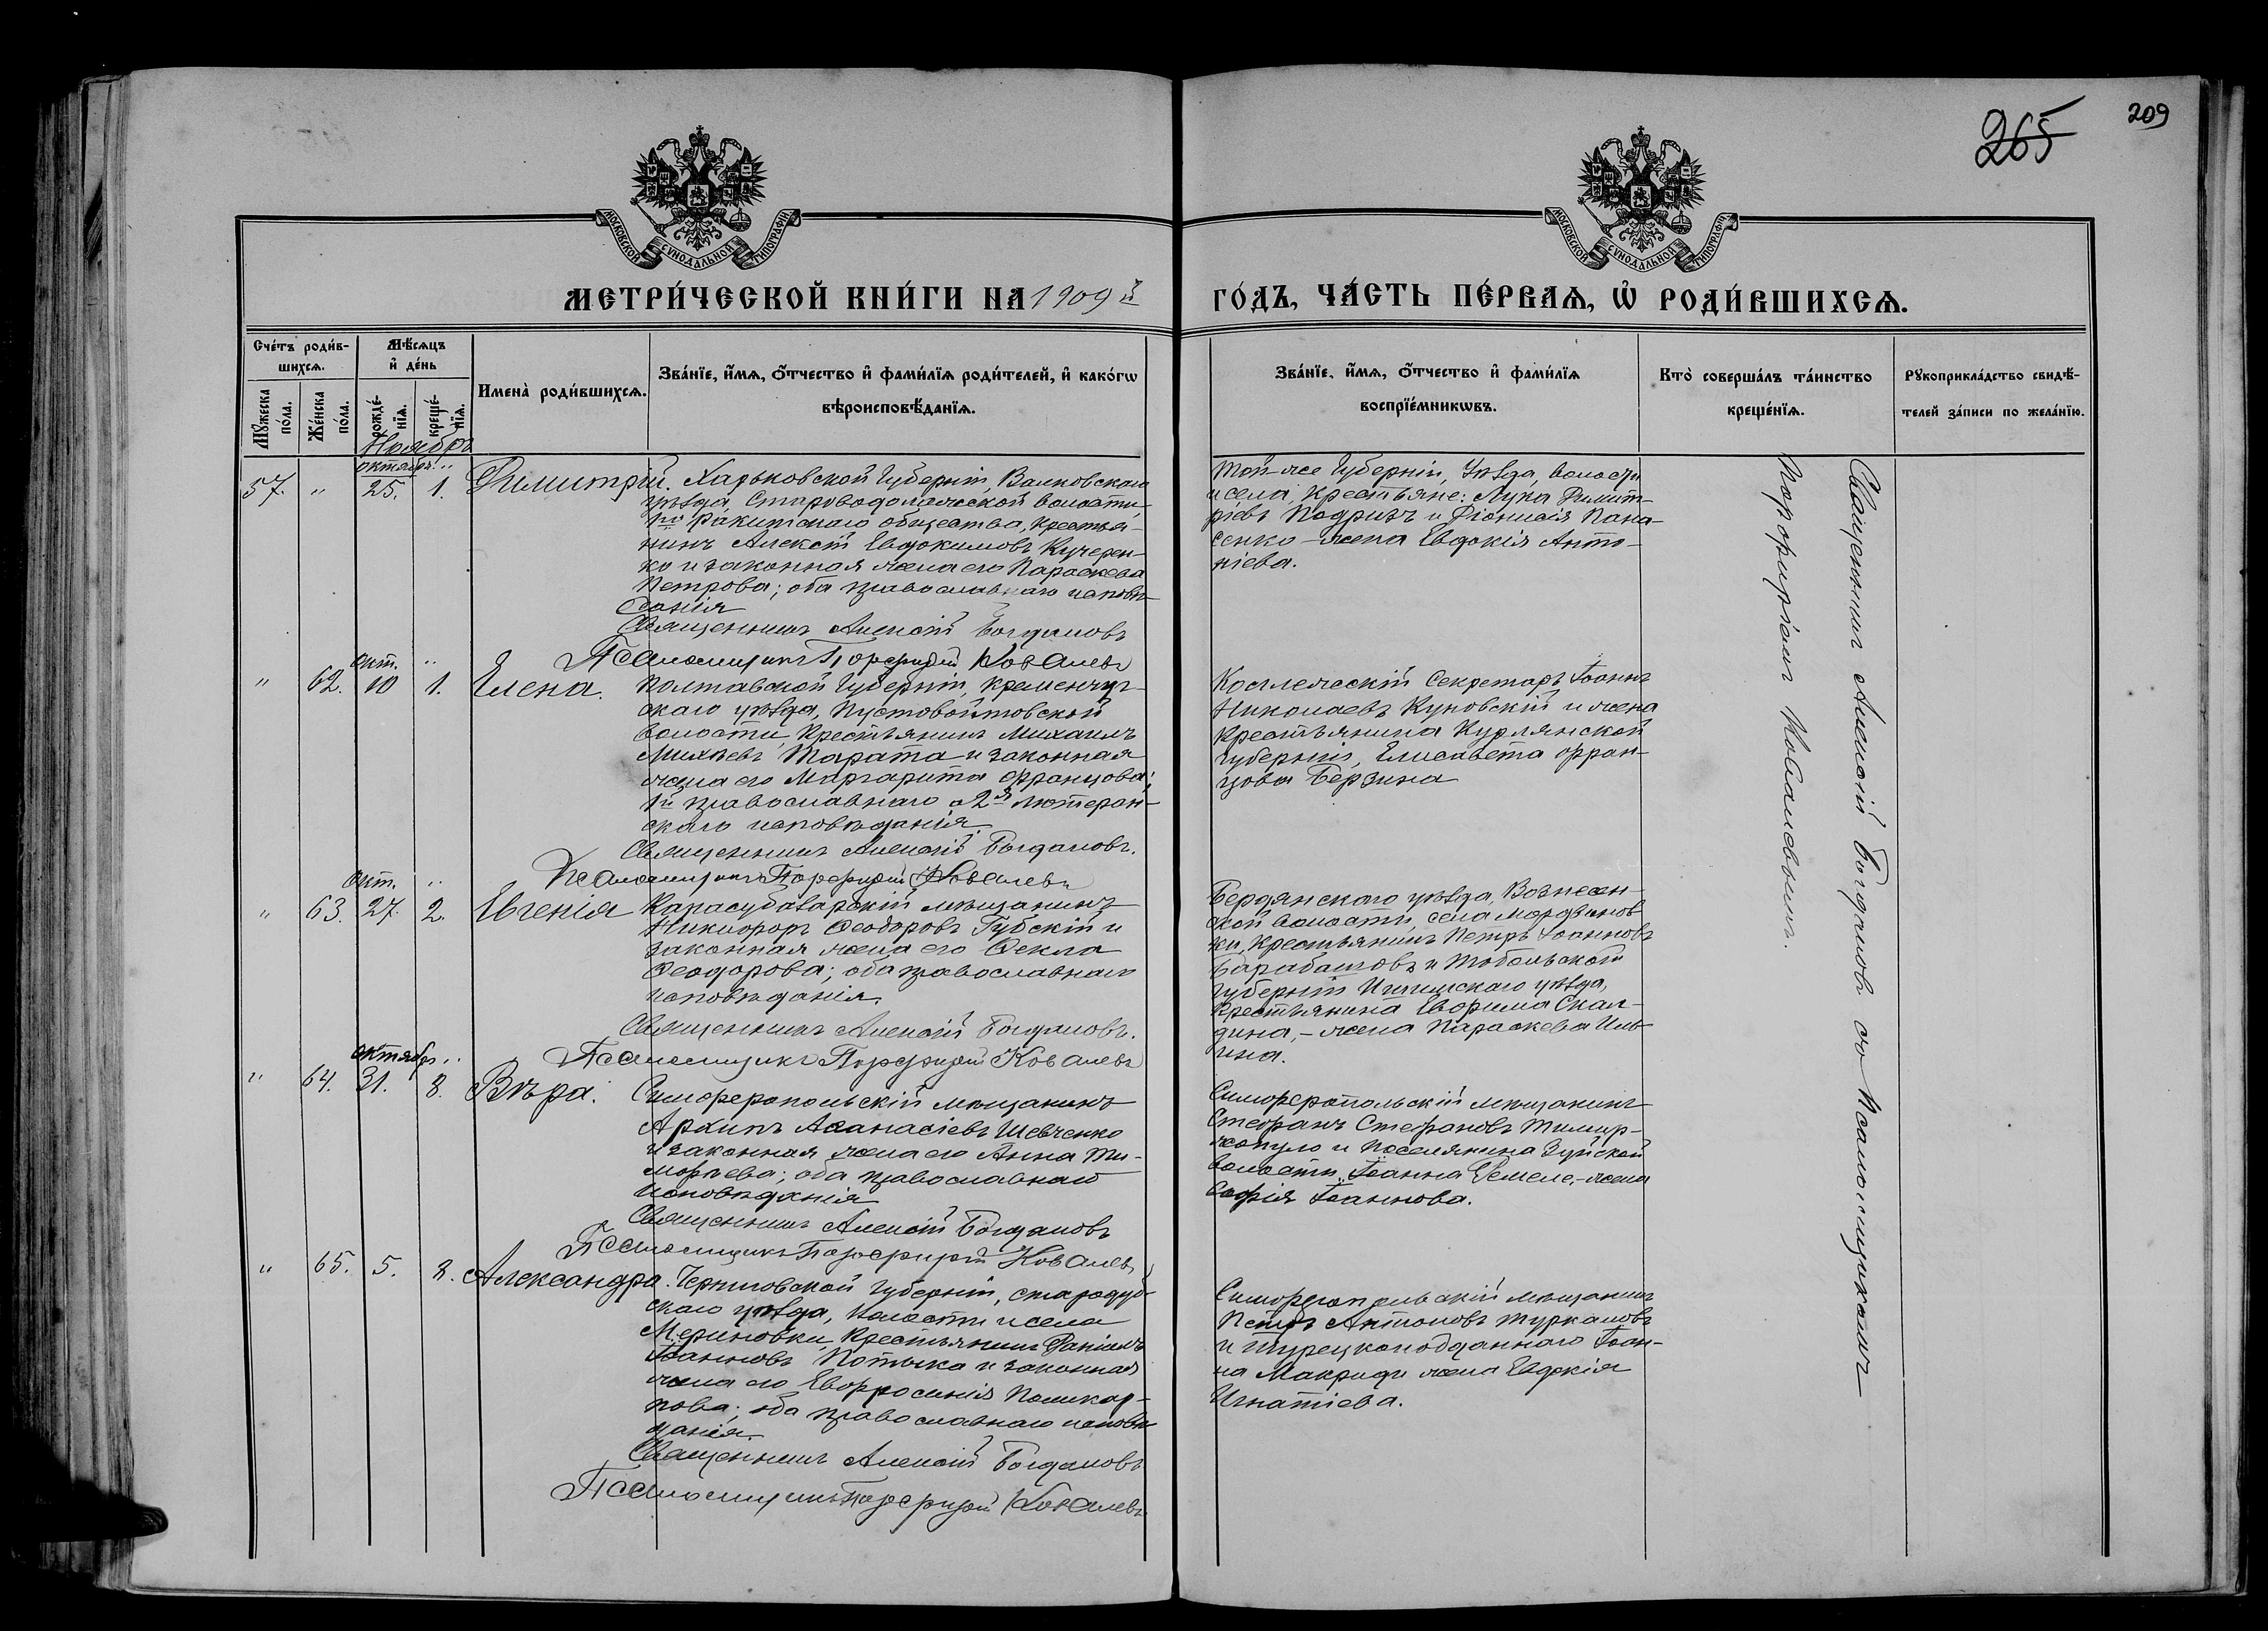 265
209
МОСКОВСКОЙ СѴНОДАЛЬНОЙ ТИПОГРАФІИ
МОСКОВСКОЙ СѴНОДАЛЬНОЙ ТИПОГРАФІИ
МЕТРИ́ЧЕСКОЙ КНИ́ГИ НА 1909 й
ГО́ДЪ, ЧА́СТЬ ПЕ́РВАѦ, Ѡ҆ РОДИ́ВШИХСѦ.
Сче́тъ роди́в-
шихсѧ.
Мꙋ́жеска по́ла.
Же́нска по́ла.
Мѣ́сѧцъ
и҆ де́нь
рожде́-
нїѧ.
креще́-
нїѧ.
Имена̀ роди́вшихсѧ.
Зва́нїе, и҆́мѧ, ѻ҆́тчество и҆ фами́лїѧ роди́телей, и҆ како́гѡ
вѣроисповѣ́данїѧ.
Зва́нїе, и҆́мѧ, ѻ҆́тчество и҆ фами́лїѧ
воспрїе́мникѡвъ.
Кто̀ соверша́лъ та́инство
креще́нїѧ.
Рꙋкоприкла́дство свидѣ́-
телей за́писи по жела́нїю.
Ноябрь
октябрь "
57. " 25. 1. Димитрій.
Харьковской Губерніи, Валковскаго
уѣзда, Староводолажской волости
1го Ракитскаго общества, крестья-
нинъ Алексѣй Евдокимовъ Кучерен-
ко и законная жена его Параскева
Петрова; оба православнаго исповѣ-
данія
Священникъ Алексій Богдановъ
Псаломщикъ Порфирій Ковалевъ
Той-же Губерніи, Уѣзда, волости
и села, крестьяне: Лука Димит-
ріевъ Подризъ и Діонисія Пана-
сенко - жена Евдокія Анто-
ніева.
окт. "
" 62. 10 1. Елена.
Полтавской Губерніи, Кременчуг-
скаго уѣзда, Пустовойтовской
волости, крестьянинъ Михаилъ
Михѣевъ Тарата и законная
жена его Маргарита Францова;
1й православнаго а 2я лютеран-
скаго исповѣданія.
Священникъ Алексій Богдановъ.
Псаломщикъ Порфирій Ковалевъ
Коллежскій Секретарь Іоаннъ
Николаевъ Куновскій и жена
крестьянина Курлянской
Губерніи, Елисавета Фран-
цова Берзина
окт. "
" 63. 27. 2. Евгенія
Карасубазарскій мѣщанинъ
Никифоръ Ѳеодоровъ Губскій и
законная жена его Ѳекла
Ѳеодорова; оба православнаго
исповѣданія.
Священникъ Алексій Богдановъ.
Псаломщикъ Порфирій Ковалевъ
Бердянскаго уѣзда, Вознесен-
ской волости, села Мордвинов-
ки, крестьянинъ Петръ Іоанновъ
Барабашовъ и Тобольской
Губерніи Ишимскаго уѣзда,
крестьянина Ефрема Скал-
дина, - жена Параскева Иль-
ина.
октябрь "
" 64. 31. 8. Вѣра.
Симферопольскій мѣщанинъ
Архипъ Аѳанасіевъ Шевченко
и законная жена его Анна Ти-
мофѣева; оба православнаго
исповѣданія
Священникъ Алексій Богдановъ
Псаломщикъ Порфирій Ковалевъ
Симферопольскій мѣщанинъ
Стефанъ Стефановъ Тимир-
жопуло и поселянина Зуйской
волости, Іоанна Гемеле, - жена
Софія Іоаннова.
" 65. 5. 8. Александра.
Черниговской Губерніи, Стародуб-
скаго уѣзда, волости и села
Мериновки, крестьянинъ Даніилъ
Іоанновъ Потыка и законная
жена его Евфросинія Поликар-
пова; оба православнаго исповѣ-
данія.
Священникъ Алексій Богдановъ
Псаломщикъ Порфирій Ковалевъ
Симферопольскій мѣщанинъ
Петръ Антоновъ Туркаловъ
и Турецкоподданнаго Іоан-
на Макриди жена Евдокія
Игнатіева.
Священникъ Алексій Богдановъ съ Псаломщикомъ
Порфиріемъ Ковалевымъ.